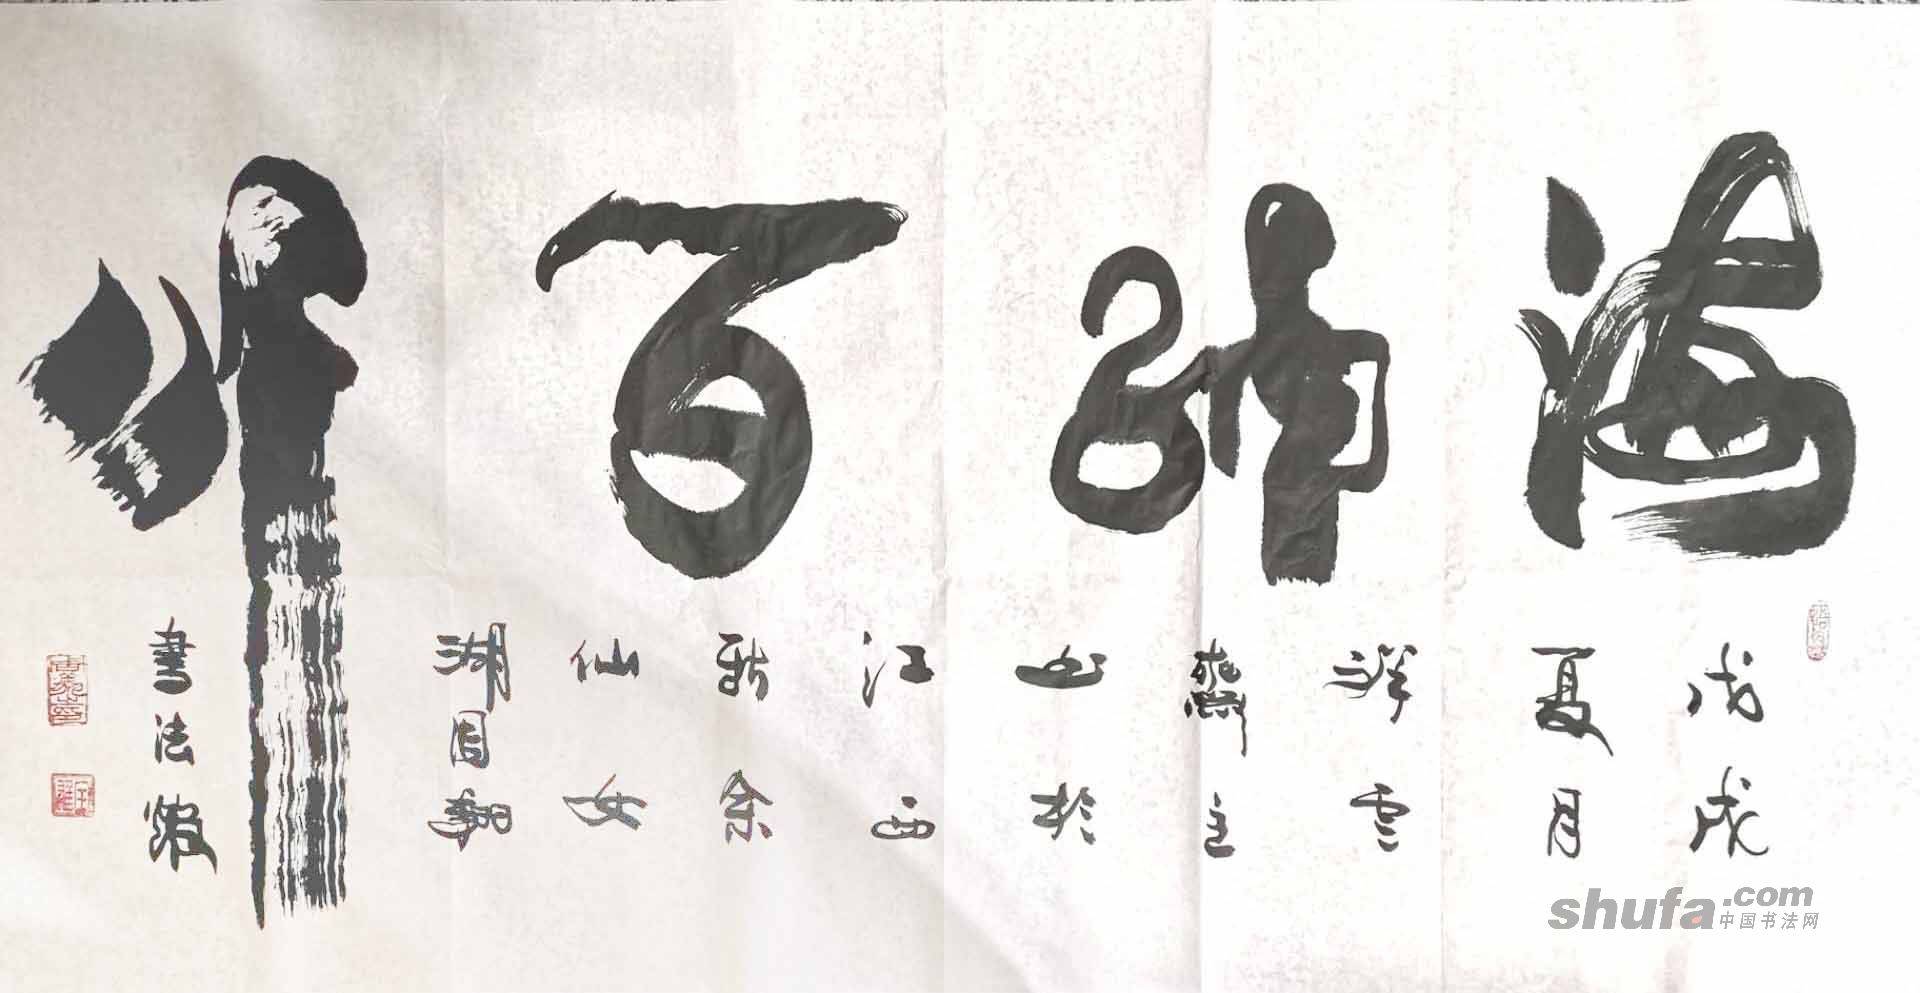 海纳百川
戊戌
夏月
祥云
燕主
山於
江西
新余
仙女
湖周
書法
shufa.com
中国书法网